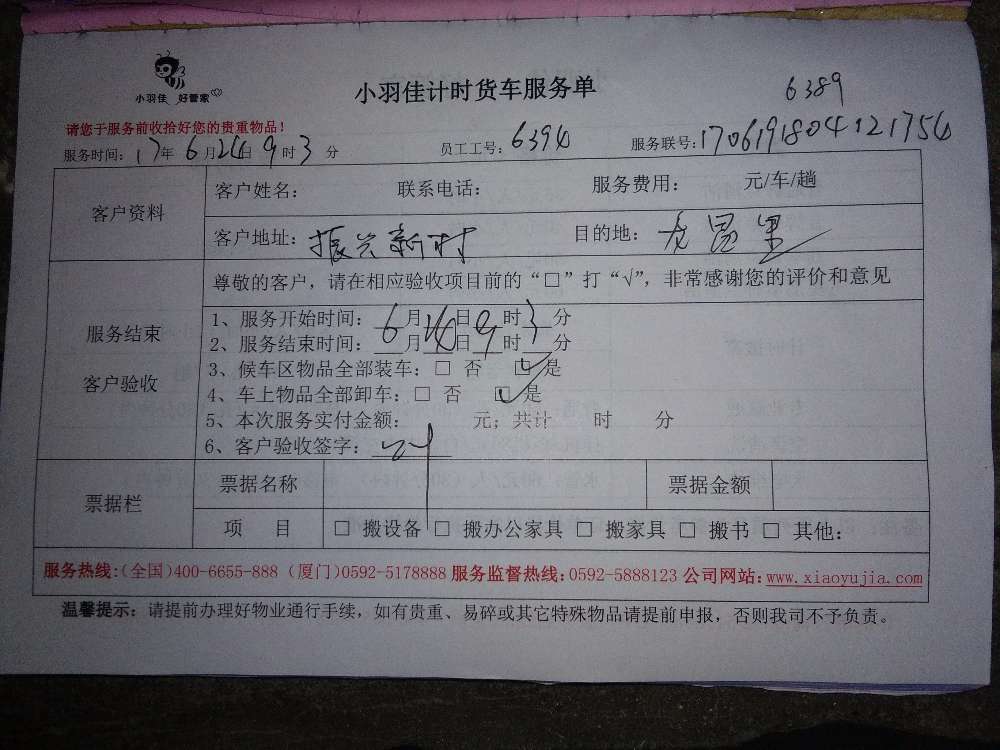 小羽佳 好管家
小羽佳计时货车服务单
6389
请您于服务前收拾好您的贵重物品!
服务时间: 17年 6月24日 9时3分 员工工号: 6394 服务联号: 1706191804121754
客户资料
客户姓名: 联系电话: 服务费用: 元/车/趟
客户地址: 振兴新村 目的地: 龙昌里
服务结束
客户验收
尊敬的客户，请在相应验收项目前的“□”打“√”，非常感谢您的评价和意见
1、服务开始时间: 6月24日9时3分
2、服务结束时间: 月 日 时 分
3、候车区物品全部装车: □ 否 ☑ 是
4、车上物品全部卸车: □ 否 ☑ 是
5、本次服务实付金额: 元; 共计 时 分
6、客户验收签字:
票据栏
票据名称 票据金额
项 目 □ 搬设备 □ 搬办公家具 □ 搬家具 □ 搬书 □ 其他:
服务热线:(全国)400-6655-888 (厦门)0592-5178888 服务监督热线: 0592-5888123 公司网站: www.xiaoyujia.com
温馨提示: 请提前办理好物业通行手续，如有贵重、易碎或其它特殊物品请提前申报，否则我司不予负责。